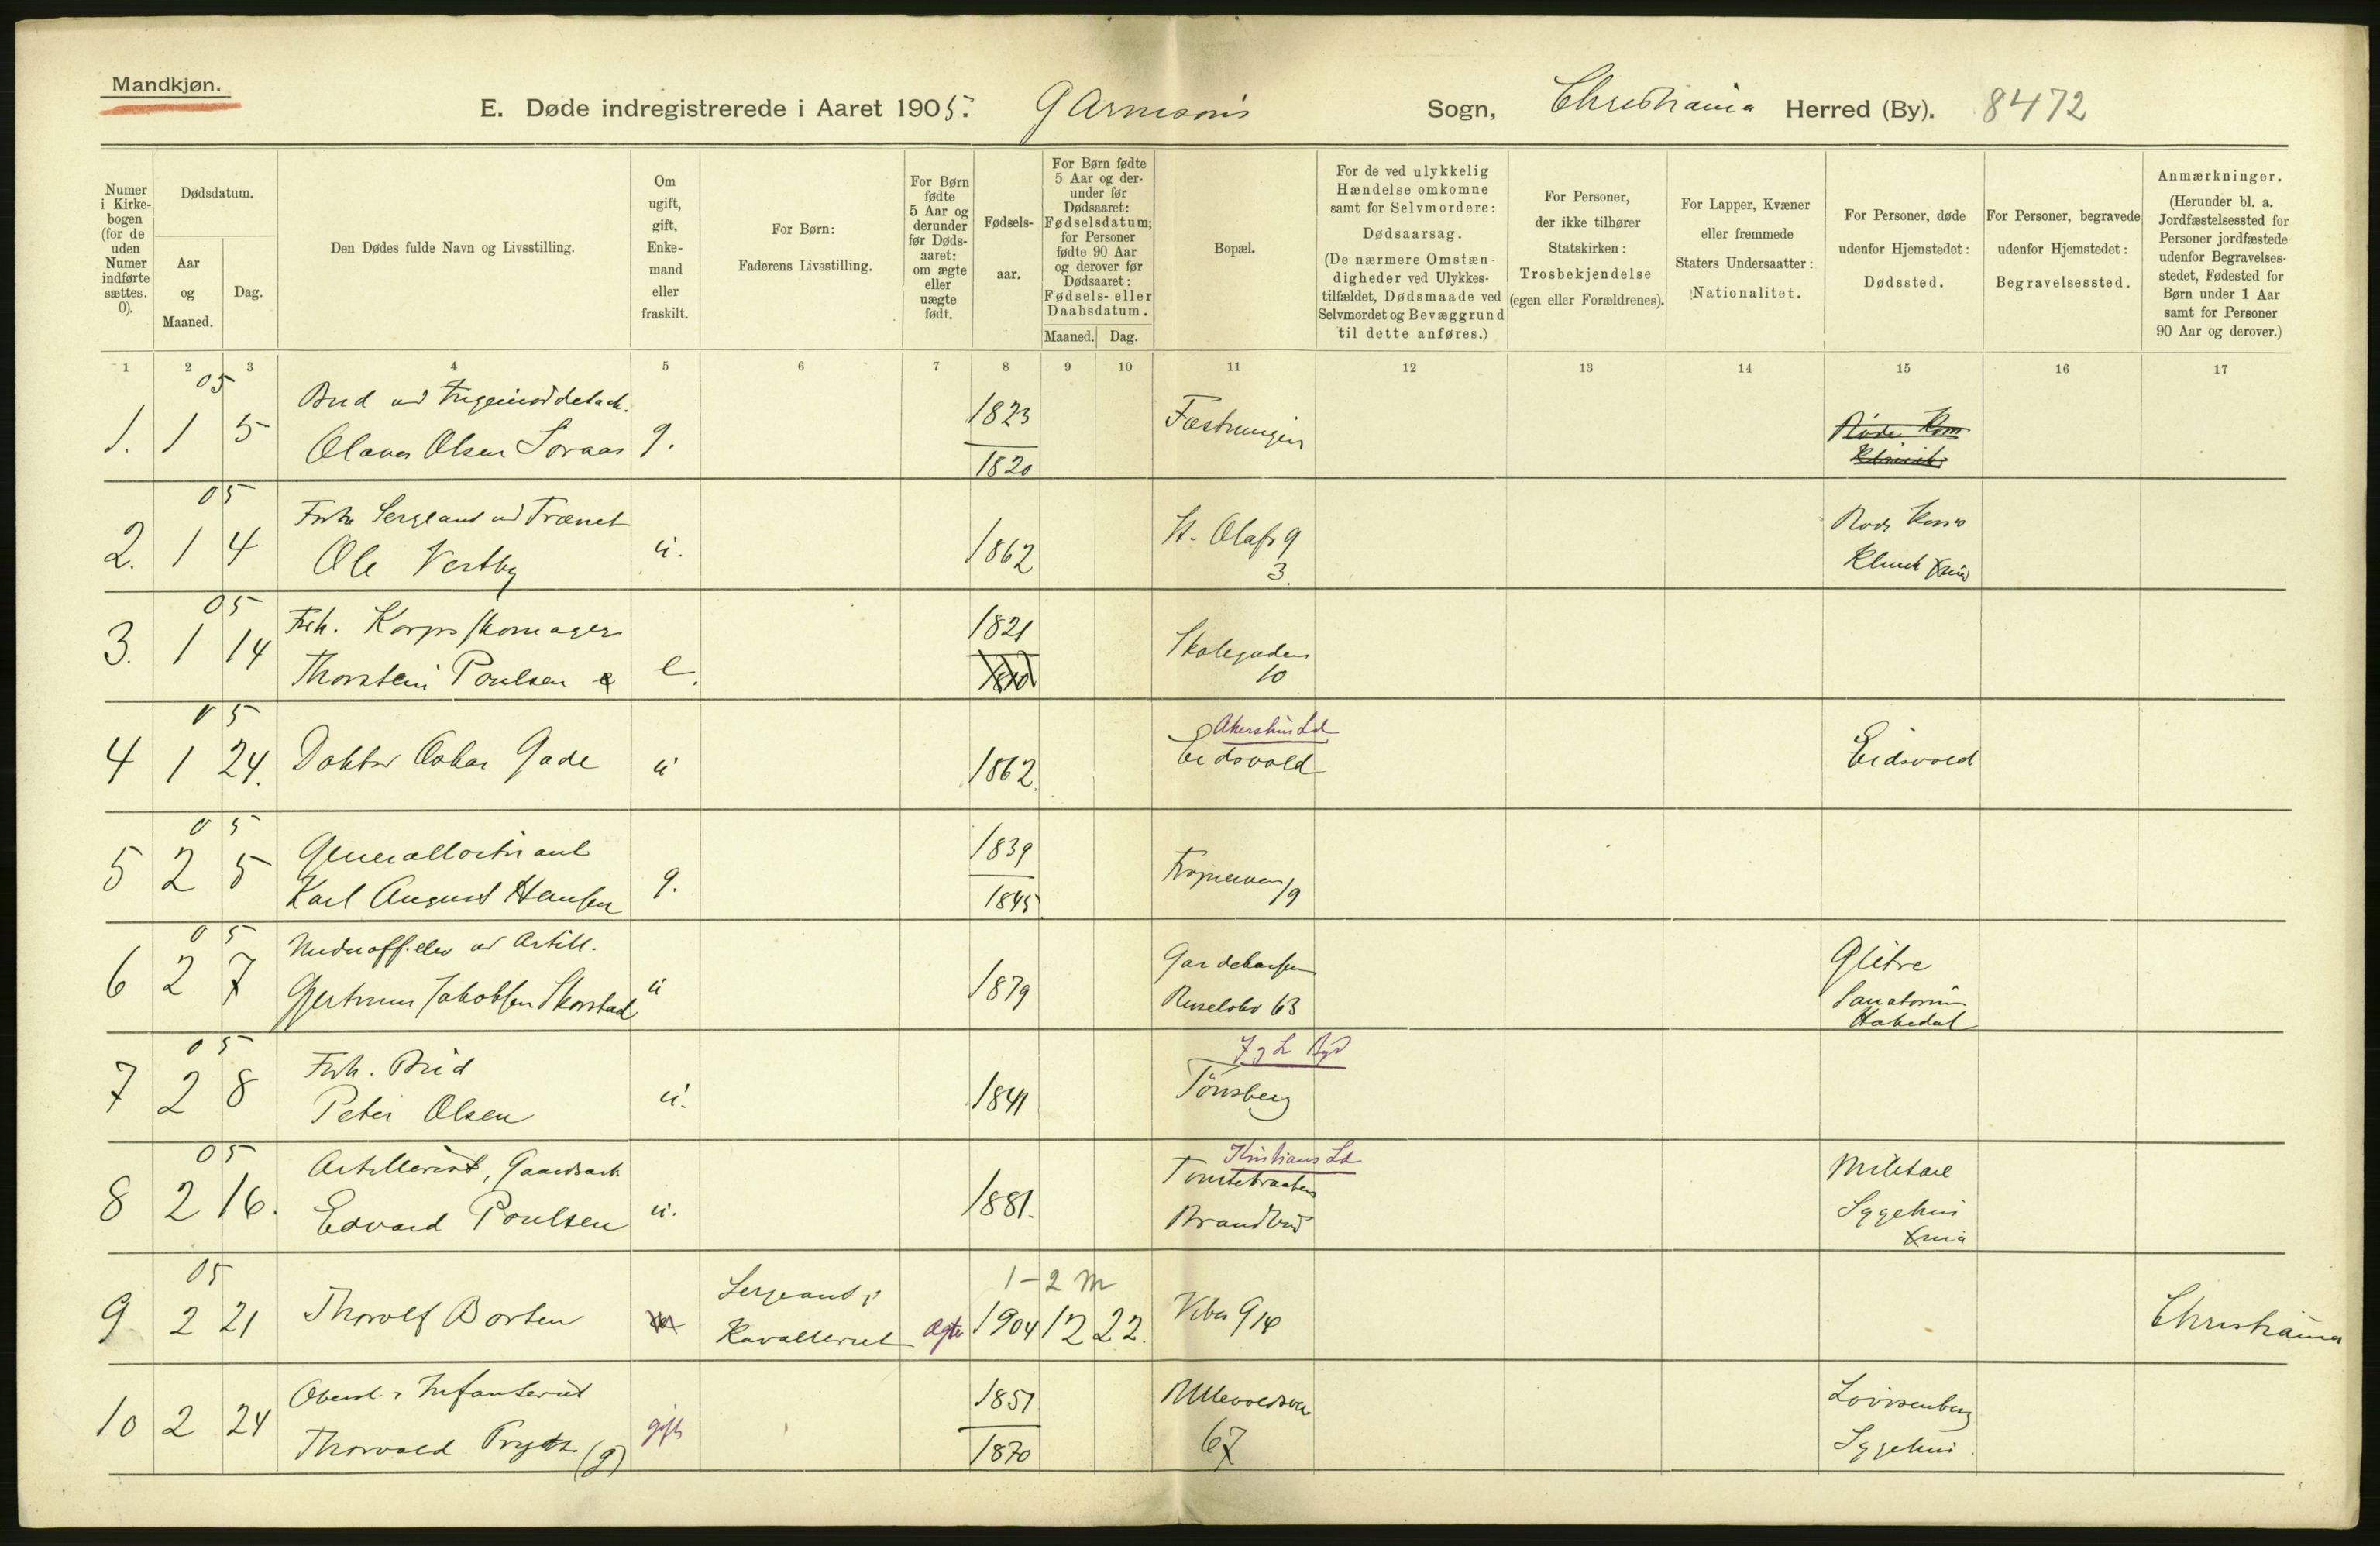 Mandkjøn.
E. Døde indregistrerede i Aaret 1905. Garnisons Sogn, Christiania Herred (By). 8472
Numer i Kirke-bogen (for de uden Numer indførte sættes. 0).
Dødsdatum.
Aar og Maaned.
Dag.
Den Dødes fulde Navn og Livsstilling.
Om ugift, gift, Enke-mand eller fraskilt.
For Børn:
Faderens Livsstilling.
For Børn fødte 5 Aar og derunder før Døds-aaret: om ægte eller uægte født.
Fødsels-aar.
For Børn fødte 5 Aar og der-under før Dødsaaret: Fødselsdatum; for Personer fødte 90 Aar og derover før Dødsaaret: Fødsels- eller Daabsdatum.
Maaned. Dag.
Bopæl.
For de ved ulykkelig Hændelse omkomne samt for Selvmordere: Dødsaarsag. (De nærmere Omstæn-digheder ved Ulykkes-tilfældet, Dødsmaade ved Selvmordet og Bevæggrund til dette anføres.)
For Personer, der ikke tilhører Statskirken: Trosbekjendelse (egen eller Forældrenes).
For Lapper, Kvæner eller fremmede Staters Undersaatter: Nationalitet.
For Personer, døde udenfor Hjemstedet: Dødssted.
For Personer, begravede udenfor Hjemstedet: Begravelsessted.
Anmærkninger. (Herunder bl. a. Jordfæstelsessted for Personer jordfæstede udenfor Begravelses-stedet, Fødested for Børn under 1 Aar samt for Personer 90 Aar og derover.)
1 2 3 4 5 6 7 8 9 10 11 12 13 14 15 16 17
05 Bud ved Ingeniørdetach. 1823 Fæstningen Røde Kors
1. 1 5 Olaves Olsen Soraas g. 1820 Klinik
05 Forhv Sergeant ved Trænet St. Olafs g Røde Kors
2. 1 4 Ole Vestby u. 1862 3. Klinik Xnia
05 Forh. Korpsskomager 1821 Skolegaden
3. 1 14 Thorstein Poulsen e e. 10
05 Akershus Ld
4 1 24. Doktor Oskar Gade u 1862. Eidsvold Eidsvold
05 Generalløitnant 1839
5 2 5 Karl August Hansen g. 1845 Frognerveien 19
05 Underoff.elev ved Artill. Gardekasernen Glitre
6 2 7 Jakobsen Skorstad u 1879 Ruseløkv 63 Sanatorium
Hakedal
05 Forh. Bud J & L Byd
7 2 8 Peter Olsen u. 1841 Tönsberg
05 Artillerist, Gaardsarb Kristians Ld Militære
8 2 16. Edvard Poulsen u. 1881. Brandbu Sygehus
Xnia
05 Sergeant i 1-2 m
9 2 21 Thorolf Borten Kavalleriet ægte 1904 12 22. Vibes g 14 Christiania
Oberstl. i Infanteriet 1851 Ullevoldsvei Lovisenberg
10 2 24 Thorvald Prydz (g) gift 1870 67 Sygehus.